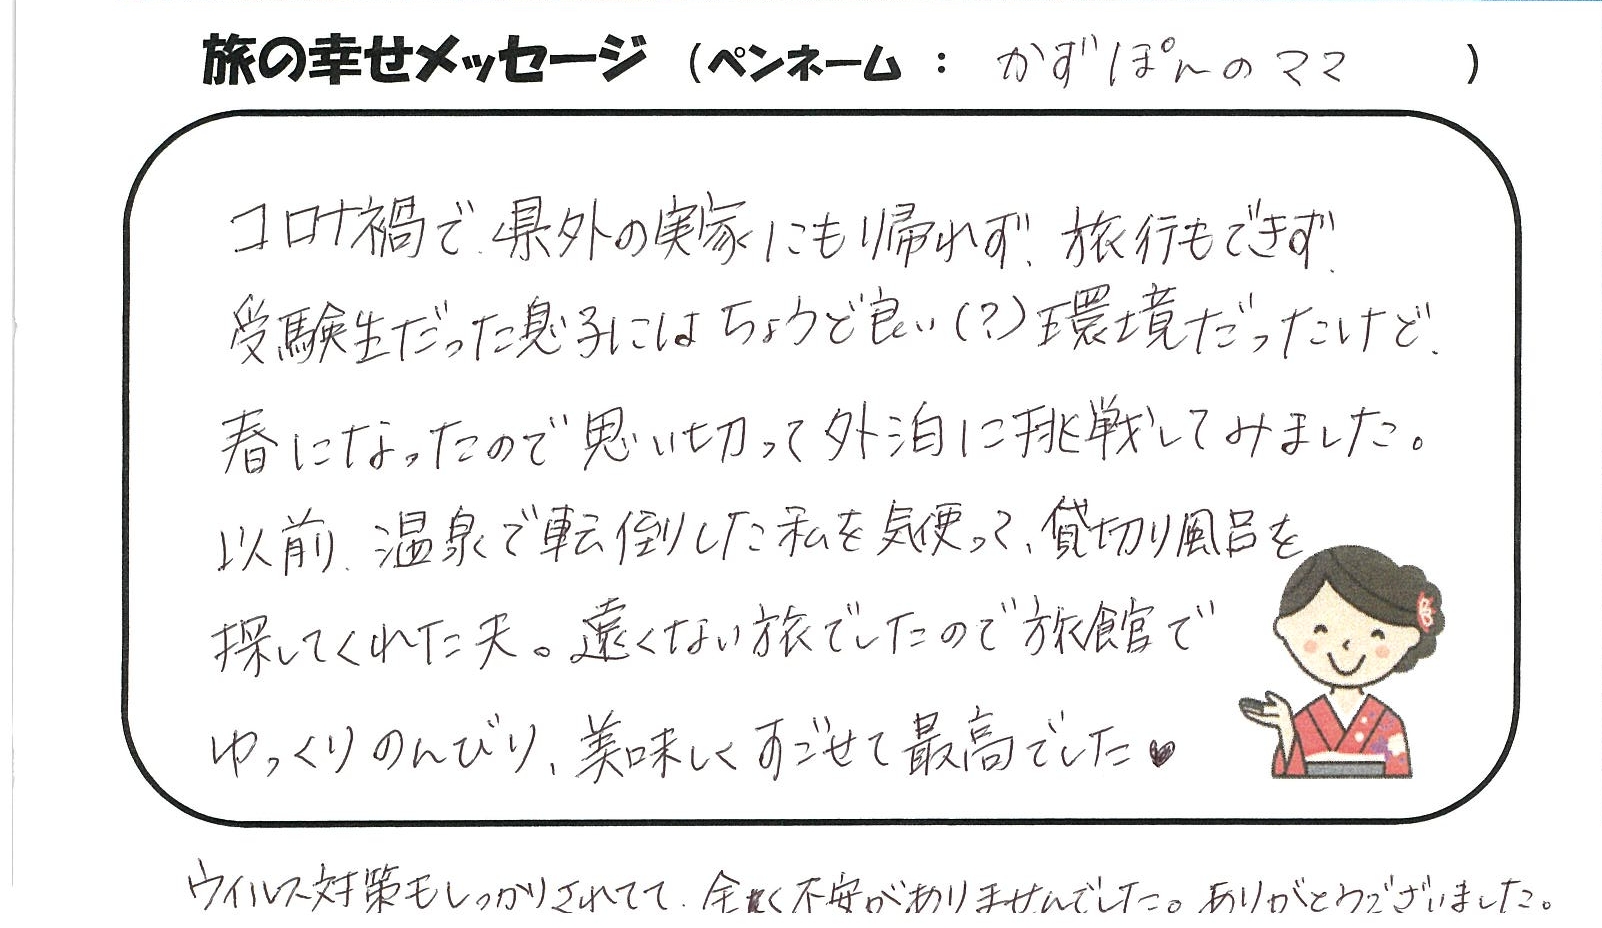 旅の幸せメッセージ（ペンネーム：かずぽんのママ）
コロナ禍で、県外の実家にもり帰れず、旅行もできず、
受験生だった息子にはちょうど良い(?)環境だったけど、
春になったので思い切って外泊に挑戦してみました。
以前、温泉で転倒りした私を気使って、貸切り風呂を
探してくれた夫。遠くない旅でしたので旅館で
ゆっくりのんびり、美味しくすごせて最高でした♥
ウイルス対策もしっかりされてて、全く不安がありませんでした。ありがとうございました。